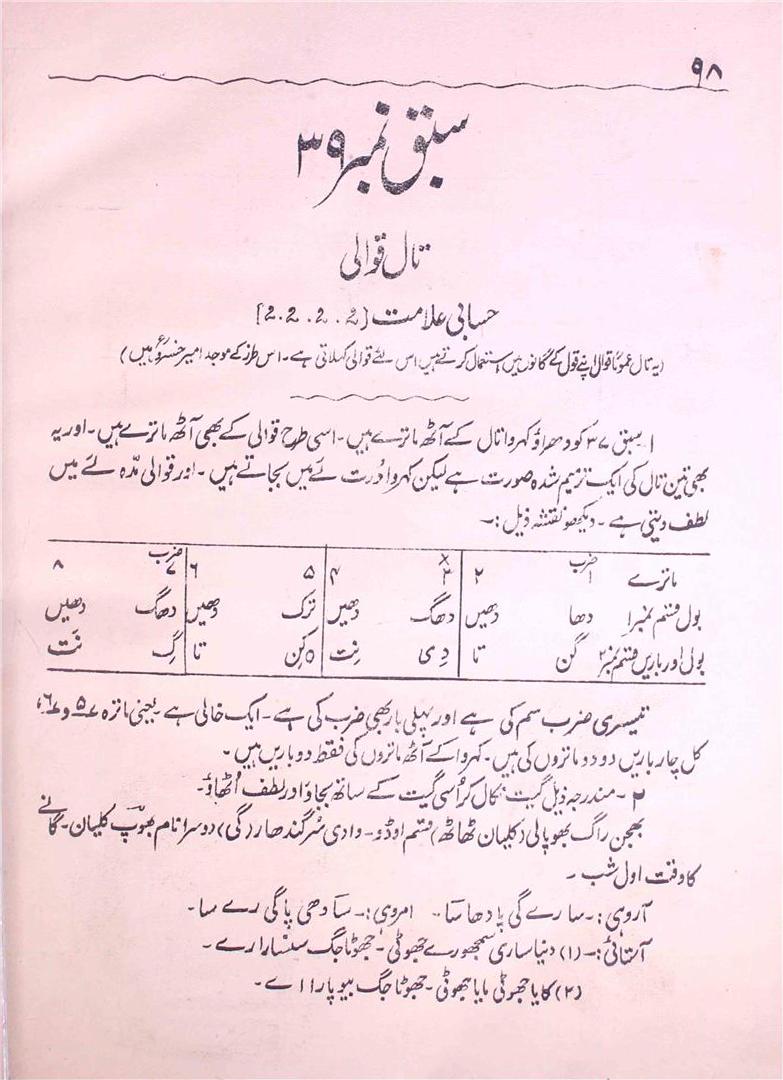 ۹۸
سبق نمبر ۳۹
تال قوالی
حسابی علامت [2.2.2.2]
(یہ تال عموماً قوال اپنے قول کے گانوں میں استعمال کرتے ہیں اس لئے قوالی کہلاتی ہے۔ اس طرز کے موجد امیر خسروؒ ہیں)
۱۔ سبق ۳۷ کو دھراؤ کہروا تال کے آٹھ ماترے ہیں۔ اسی طرح قوالی کے بھی آٹھ ماترے ہیں۔ اور یہ
بھی تین تال کی ایک ترمیم شدہ صورت ہے لیکن کہروا دُرت لَے میں بجاتے ہیں۔ اور قوالی مدّہ لئے میں
لطف دیتی ہے۔ دیکھو نقشہ ذیل:۔
ضرب × ضرب
ماترے ۱ ۲ ۳ ۴ ۵ ۶ ۷ ۸
بول قسم نمبر۱ دھا دھیں دھاگ دھیں ترک دھیں دھاگ دھیں
بول اور باریں قسم نمبر۲ گن تا دِی نِت کِن تا گِ نَت
تیسری ضرب سم کی ہے اور پہلی بار بھی ضرب کی ہے۔ ایک خالی ہے۔ یعنی ماترہ ۵ و ۶،
کل چار باریں دو دو ماتروں کی ہیں۔ کہروا کے آٹھ ماتروں کی فقط دو باریں ہیں۔
۲۔ مندرجہ ذیل گیت نکال کر اُسی گیت کے ساتھ بجاؤ اور لطف اُٹھاؤ۔
بھجن راگ بھوپالی (کلیان ٹھاٹھ) قسم اوڈو۔ وادی سُر گندھار (گی) دوسرا نام بھوپ کلیان۔ گانے
کا وقت اول شب۔
آروہی:۔ سا رے گی پا دھا سا۔ امروہی:۔ سا دھی پا گی رے سا۔
آستائی:۔ (۱) دنیا ساری سمجھو رے جھوٹی۔ جھوٹا جگ سنسارا رے۔
(۲) کایا جھوٹی مایا جھوٹی۔ جھوٹا جگ بیوپارا اے۔